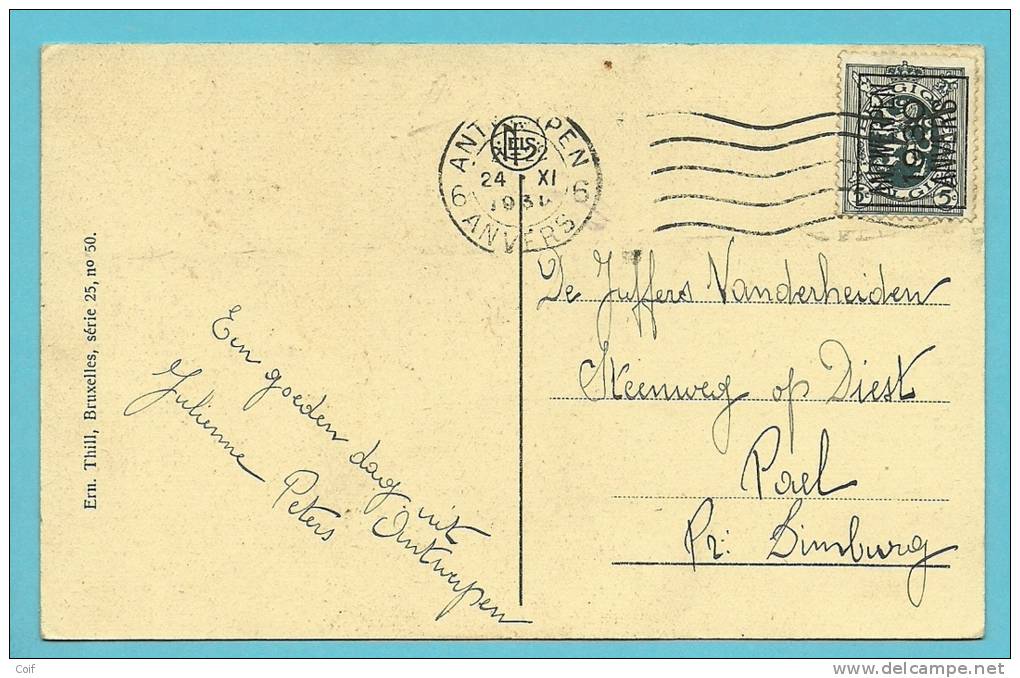 ANTWERPEN
NELS
24 XI
1931
6 6
ANVERS
BELGIQUE
ANTWERPEN
1930
ANVERS
BELGIE
5c 5c
De Juffers Vanderheiden
Steenweg op Diest
Pael
Pr: Limburg
Een goeden dag uit Antwerpen
Julienne Peters
Ern. Thill, Bruxelles, série 25, no 50.
Coif
delcampe.net